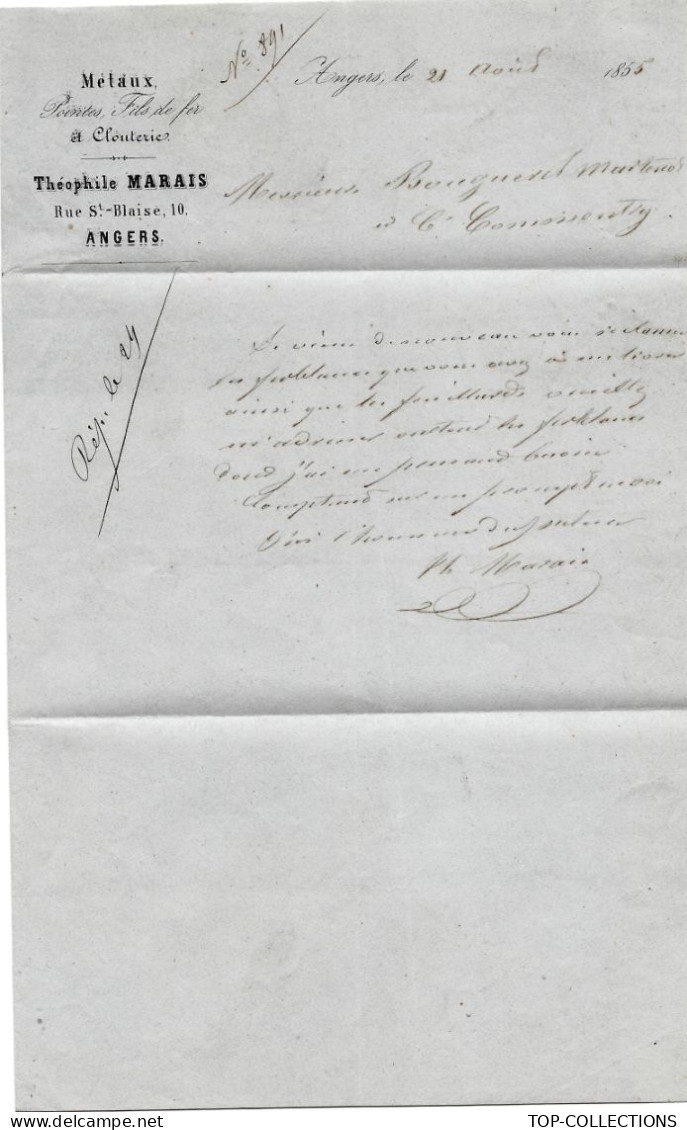 N° 891
Angers, le 21 Août 1855
Métaux,
Pointes, Fils de fer
et Clouterie.
Théophile MARAIS
Rue St.-Blaise, 10,
ANGERS.
Messieurs Bougueret Martenot
et Cie Commentry
Rép. le 24
Je viens de nouveau vous réclamer
les ferblancs que vous avez à me livrer
ainsi que les feuillards veuillez
m'adresser surtout les ferblancs
dont j'ai un pressant besoin
Comptant sur un prompt envoi
J'ai l'honneur de vous saluer
Th Marais
TOP-COLLECTIONS